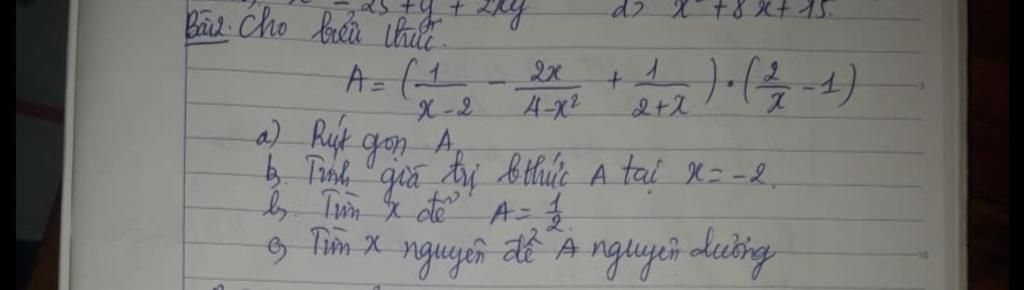 = 25 + y + 2xy d) x² + 8x + 15.
Bài2. Cho biểu thức.
A = (1/(x-2) - 2x/(4-x²) + 1/(2+x)) · (2/x - 1)
a) Rút gọn A
b, Tính giá trị bthức A tại x = -2.
b, Tìm x để A = 1/2.
c, Tìm x nguyên để A nguyên dương